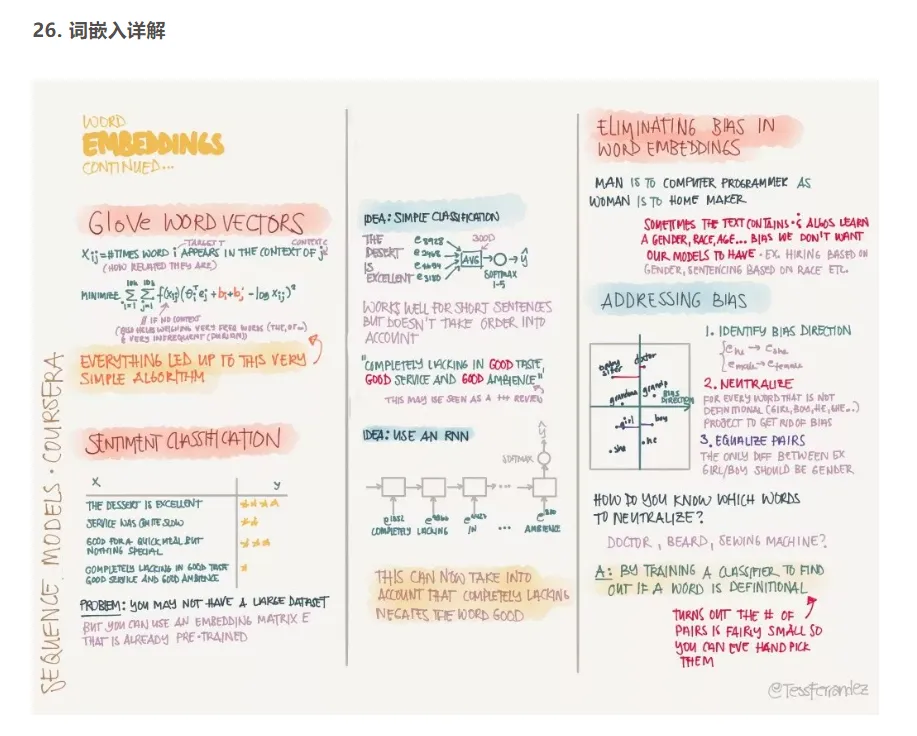 26. 词嵌入详解
WORD
EMBEDDINGS
CONTINUED...
GloVe WORD VECTORS
TARGET T
CONTEXT C
Xij = #TIMES WORD i APPEARS IN THE CONTEXT OF j
(HOW RELATED THEY ARE)
MINIMIZE
10k 10k
Σ Σ f(xij)(θiT ej + bi + bj' - log xij)²
i=1 j=1
// IF NO CONTEXT
& VERY INFREQUENT (DURIAN)
EVERYTHING LED UP TO THIS VERY
SIMPLE ALGORITHM
SENTIMENT CLASSIFICATION
X Y
THE DESSERT IS EXCELLENT ★★★★
SERVICE WAS QUITE SLOW ★★
GOOD FOR A QUICK MEAL BUT
NOTHING SPECIAL ★★★
COMPLETELY LACKING IN GOOD TASTE
GOOD SERVICE AND GOOD AMBIENCE ★
PROBLEM: YOU MAY NOT HAVE A LARGE DATASET
BUT YOU CAN USE AN EMBEDDING MATRIX E
THAT IS ALREADY PRE-TRAINED
SEQUENCE MODELS · COURSERA
IDEA: SIMPLE CLASSIFICATION
THE
DESERT
IS
EXCELLENT
e8928
e3180
300D
AVG
ŷ
SOFTMAX
1-5
WORKS WELL FOR SHORT SENTENCES
BUT DOESN'T TAKE ORDER INTO
ACCOUNT
"COMPLETELY LACKING IN GOOD TASTE,
GOOD SERVICE AND GOOD AMBIENCE"
THIS MAY BE SEEN AS A +++ REVIEW
IDEA: USE AN RNN
ŷ
SOFTMAX
e1852
COMPLETELY LACKING IN ... AMBIENCE
THIS CAN NOW TAKE INTO
ACCOUNT THAT COMPLETELY LACKING
NEGATES THE WORD GOOD
ELIMINATING BIAS IN
WORD EMBEDDINGS
MAN IS TO COMPUTER PROGRAMMER AS
WOMAN IS TO HOME MAKER
SOMETIMES THE TEXT CONTAINS & ALGOS LEARN
A GENDER, RACE, AGE... BIAS WE DON'T WANT
OUR MODELS TO HAVE · EX. HIRING BASED ON
GENDER, SENTENCING BASED ON RACE ETC.
ADDRESSING BIAS
doctor
grandma
grandp
BIAS
DIRECTION
girl
boy
she
he
1. IDENTIFY BIAS DIRECTION
ehe → eshe
emale → efemale
2. NEUTRALIZE
FOR EVERY WORD THAT IS NOT
DEFINITIONAL (GIRL, BOY, HE, SHE...)
PROJECT TO GET RID OF BIAS
3. EQUALIZE PAIRS
THE ONLY DIFF BETWEEN EX
GIRL/BOY SHOULD BE GENDER
HOW DO YOU KNOW WHICH WORDS
TO NEUTRALIZE?
DOCTOR, BEARD, SEWING MACHINE?
A: BY TRAINING A CLASSIFIER TO FIND
OUT IF A WORD IS DEFINITIONAL
TURNS OUT THE # OF
PAIRS IS FAIRLY SMALL SO
YOU CAN EVE HAND PICK
THEM
@TessFerrandez